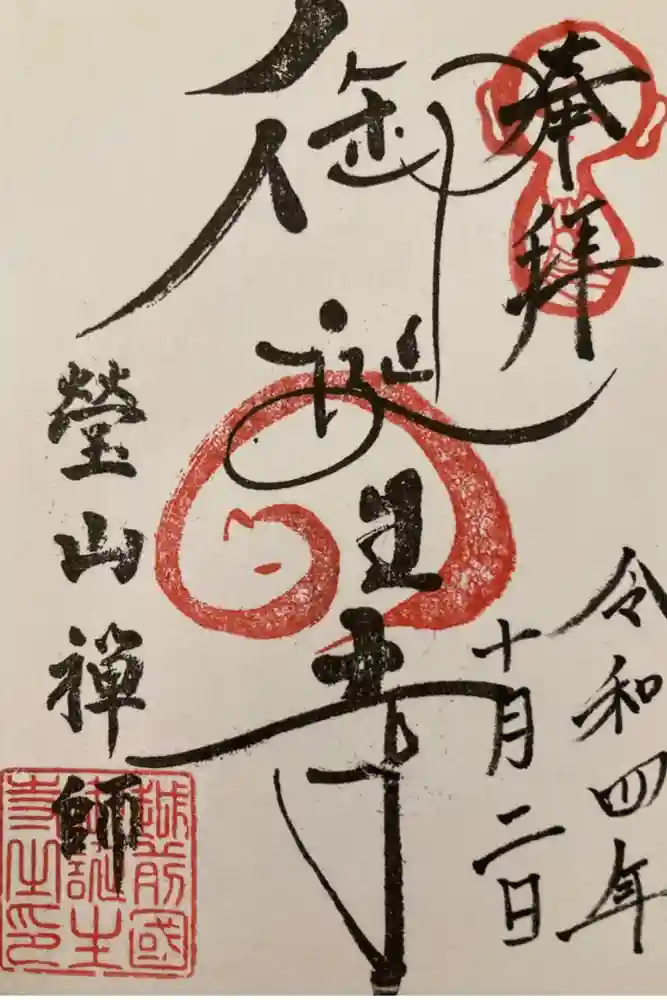 奉拝
令和四年
十月二日
御誕生寺
瑩山禅師
越前國
御誕生
寺之印